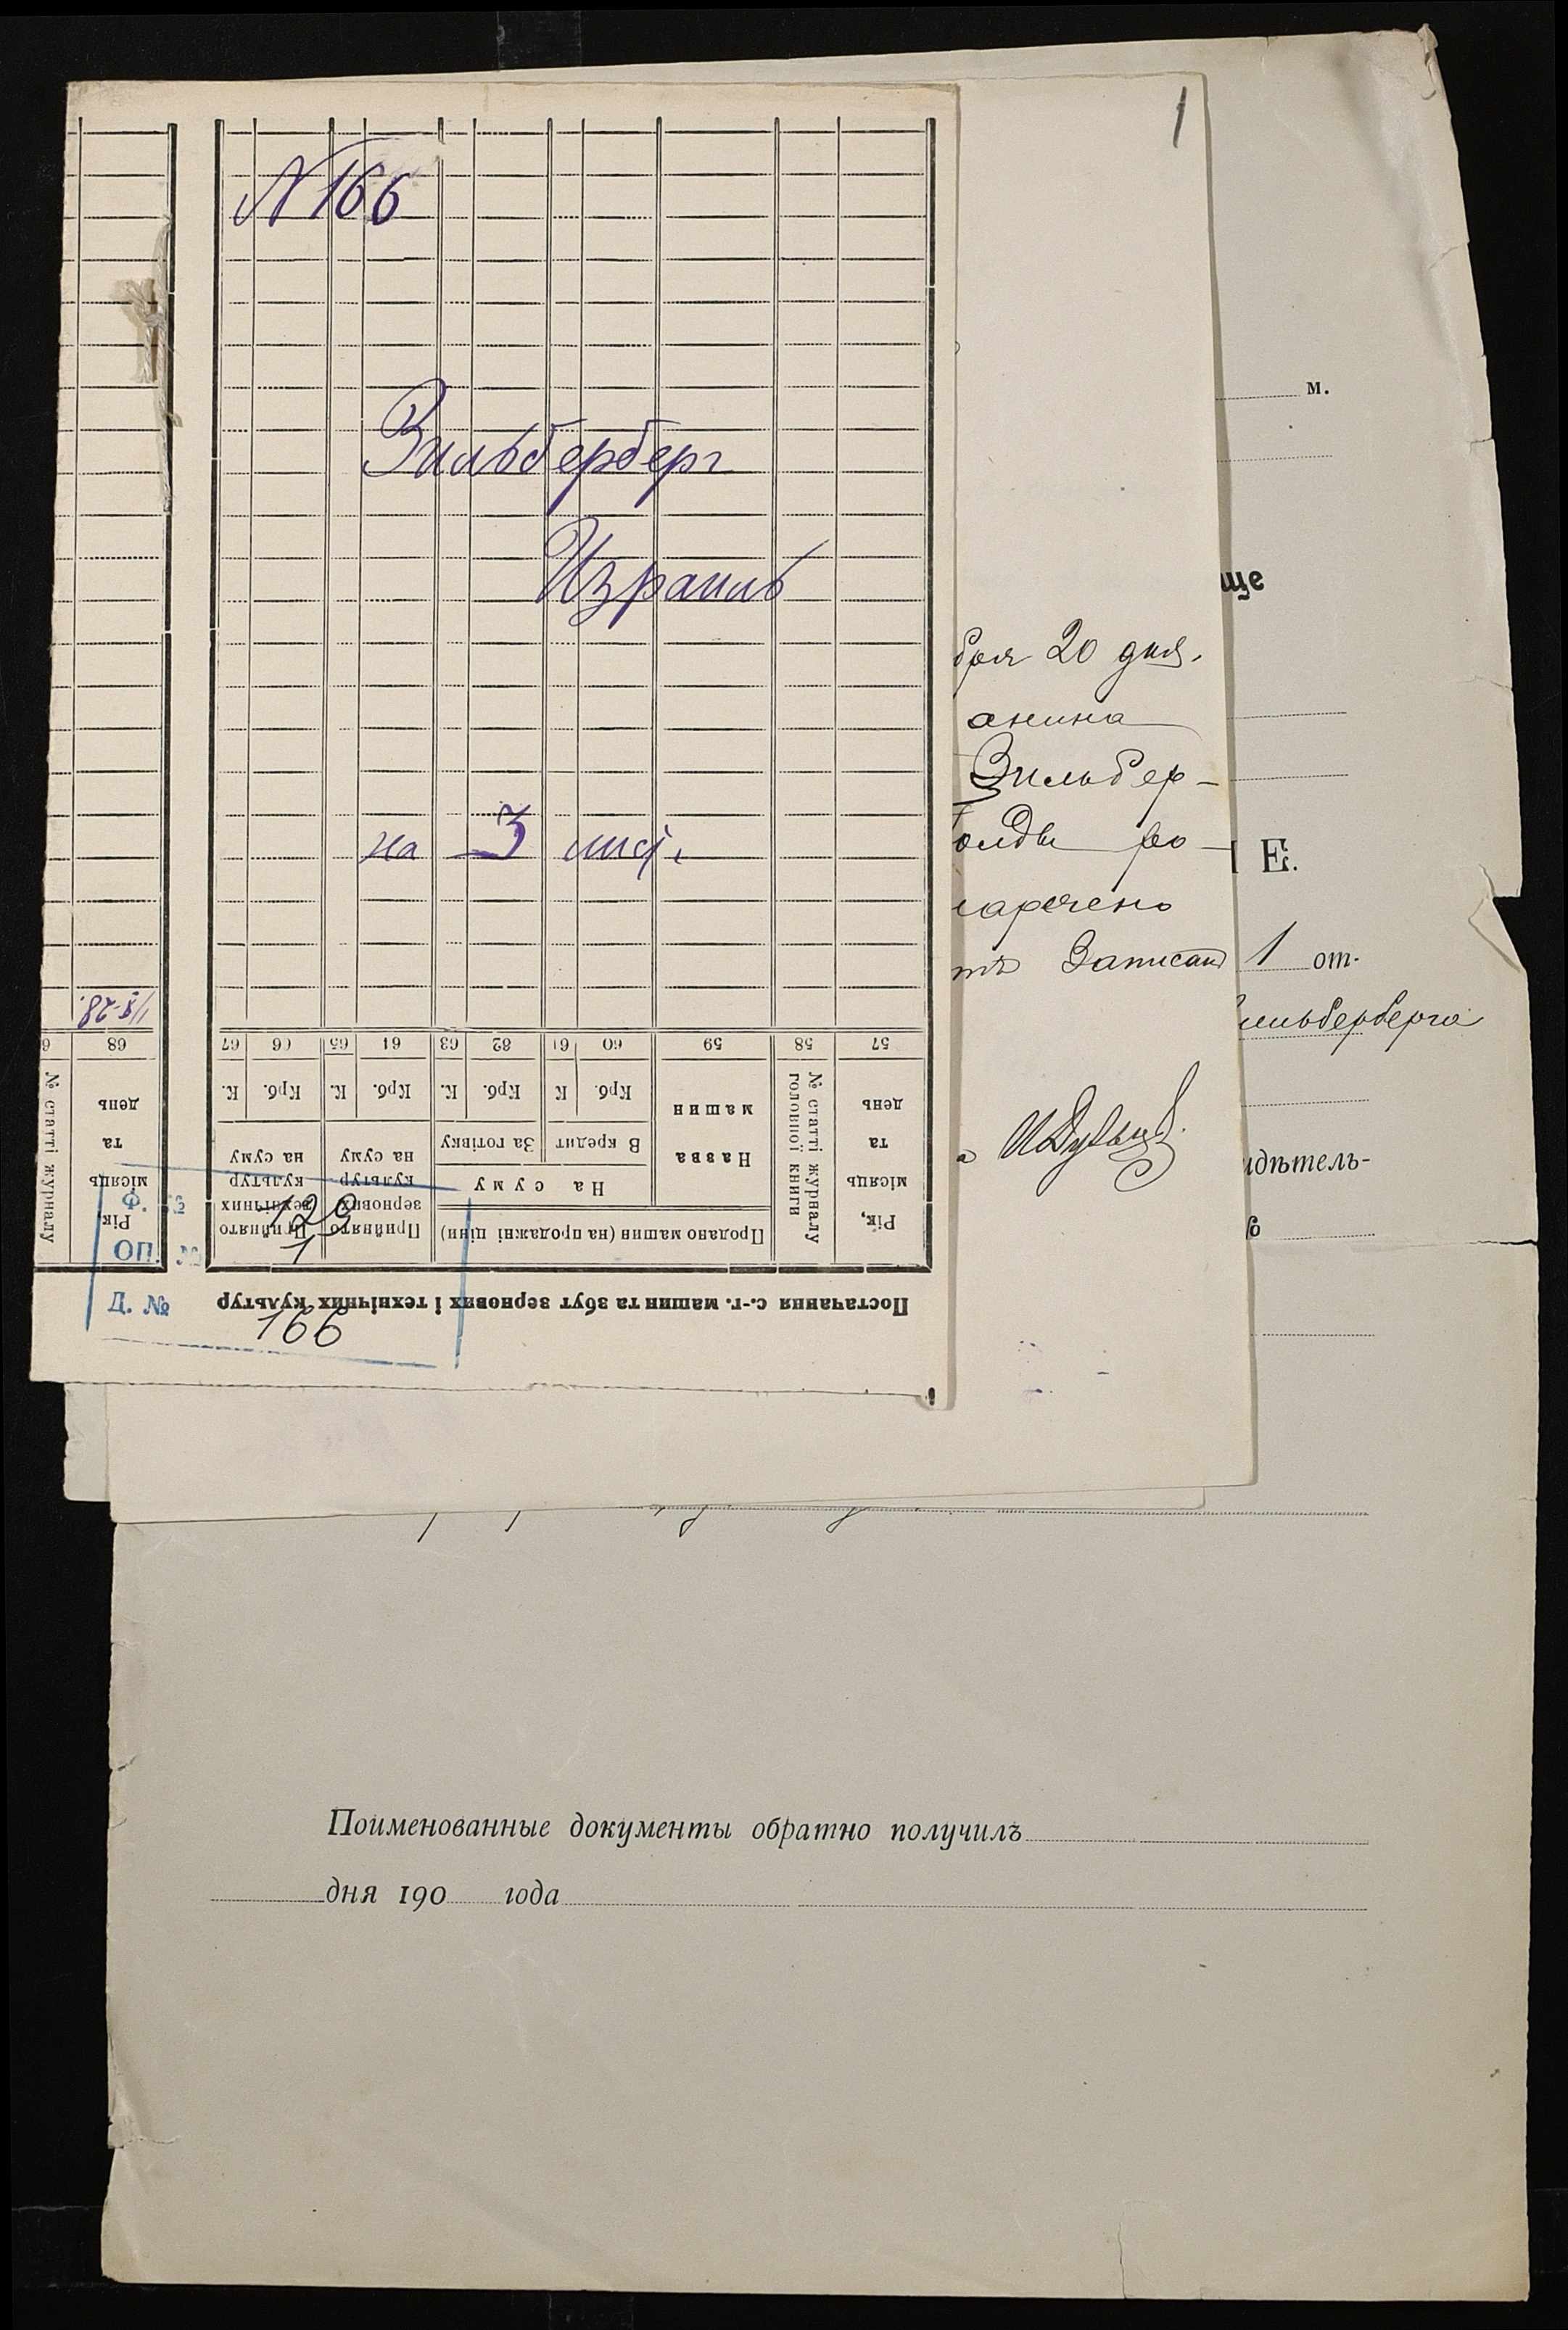 N 166
Зильберберг
Израиль
на 3 лист.
1/X-28.
57 58 59 60 61 62 63 64 65 66 67
68
Рік, місяць та день
№ статті журналу головної книги
Назва машин
Крб. К. Крб. К. Крб. К. Крб. К.
В кредит За готівку
На суму
Продано машин (на продажні ціни)
Прийнято зернових культур на суму
Прийнято технічних культур на суму
Рік місяць та день
№ статті журналу
Постачання с.-г. машин та збут зернових і технічних культур
Ф. № 129
ОП. № 1
Д. № 166
1
бря 20 дня.
анина
Зильбер-
ро-
наречено
Записанъ
м.
ще
Е.
1 от-
ильберберга
идѣтель-
Поименованные документы обратно получилъ
дня 190 года